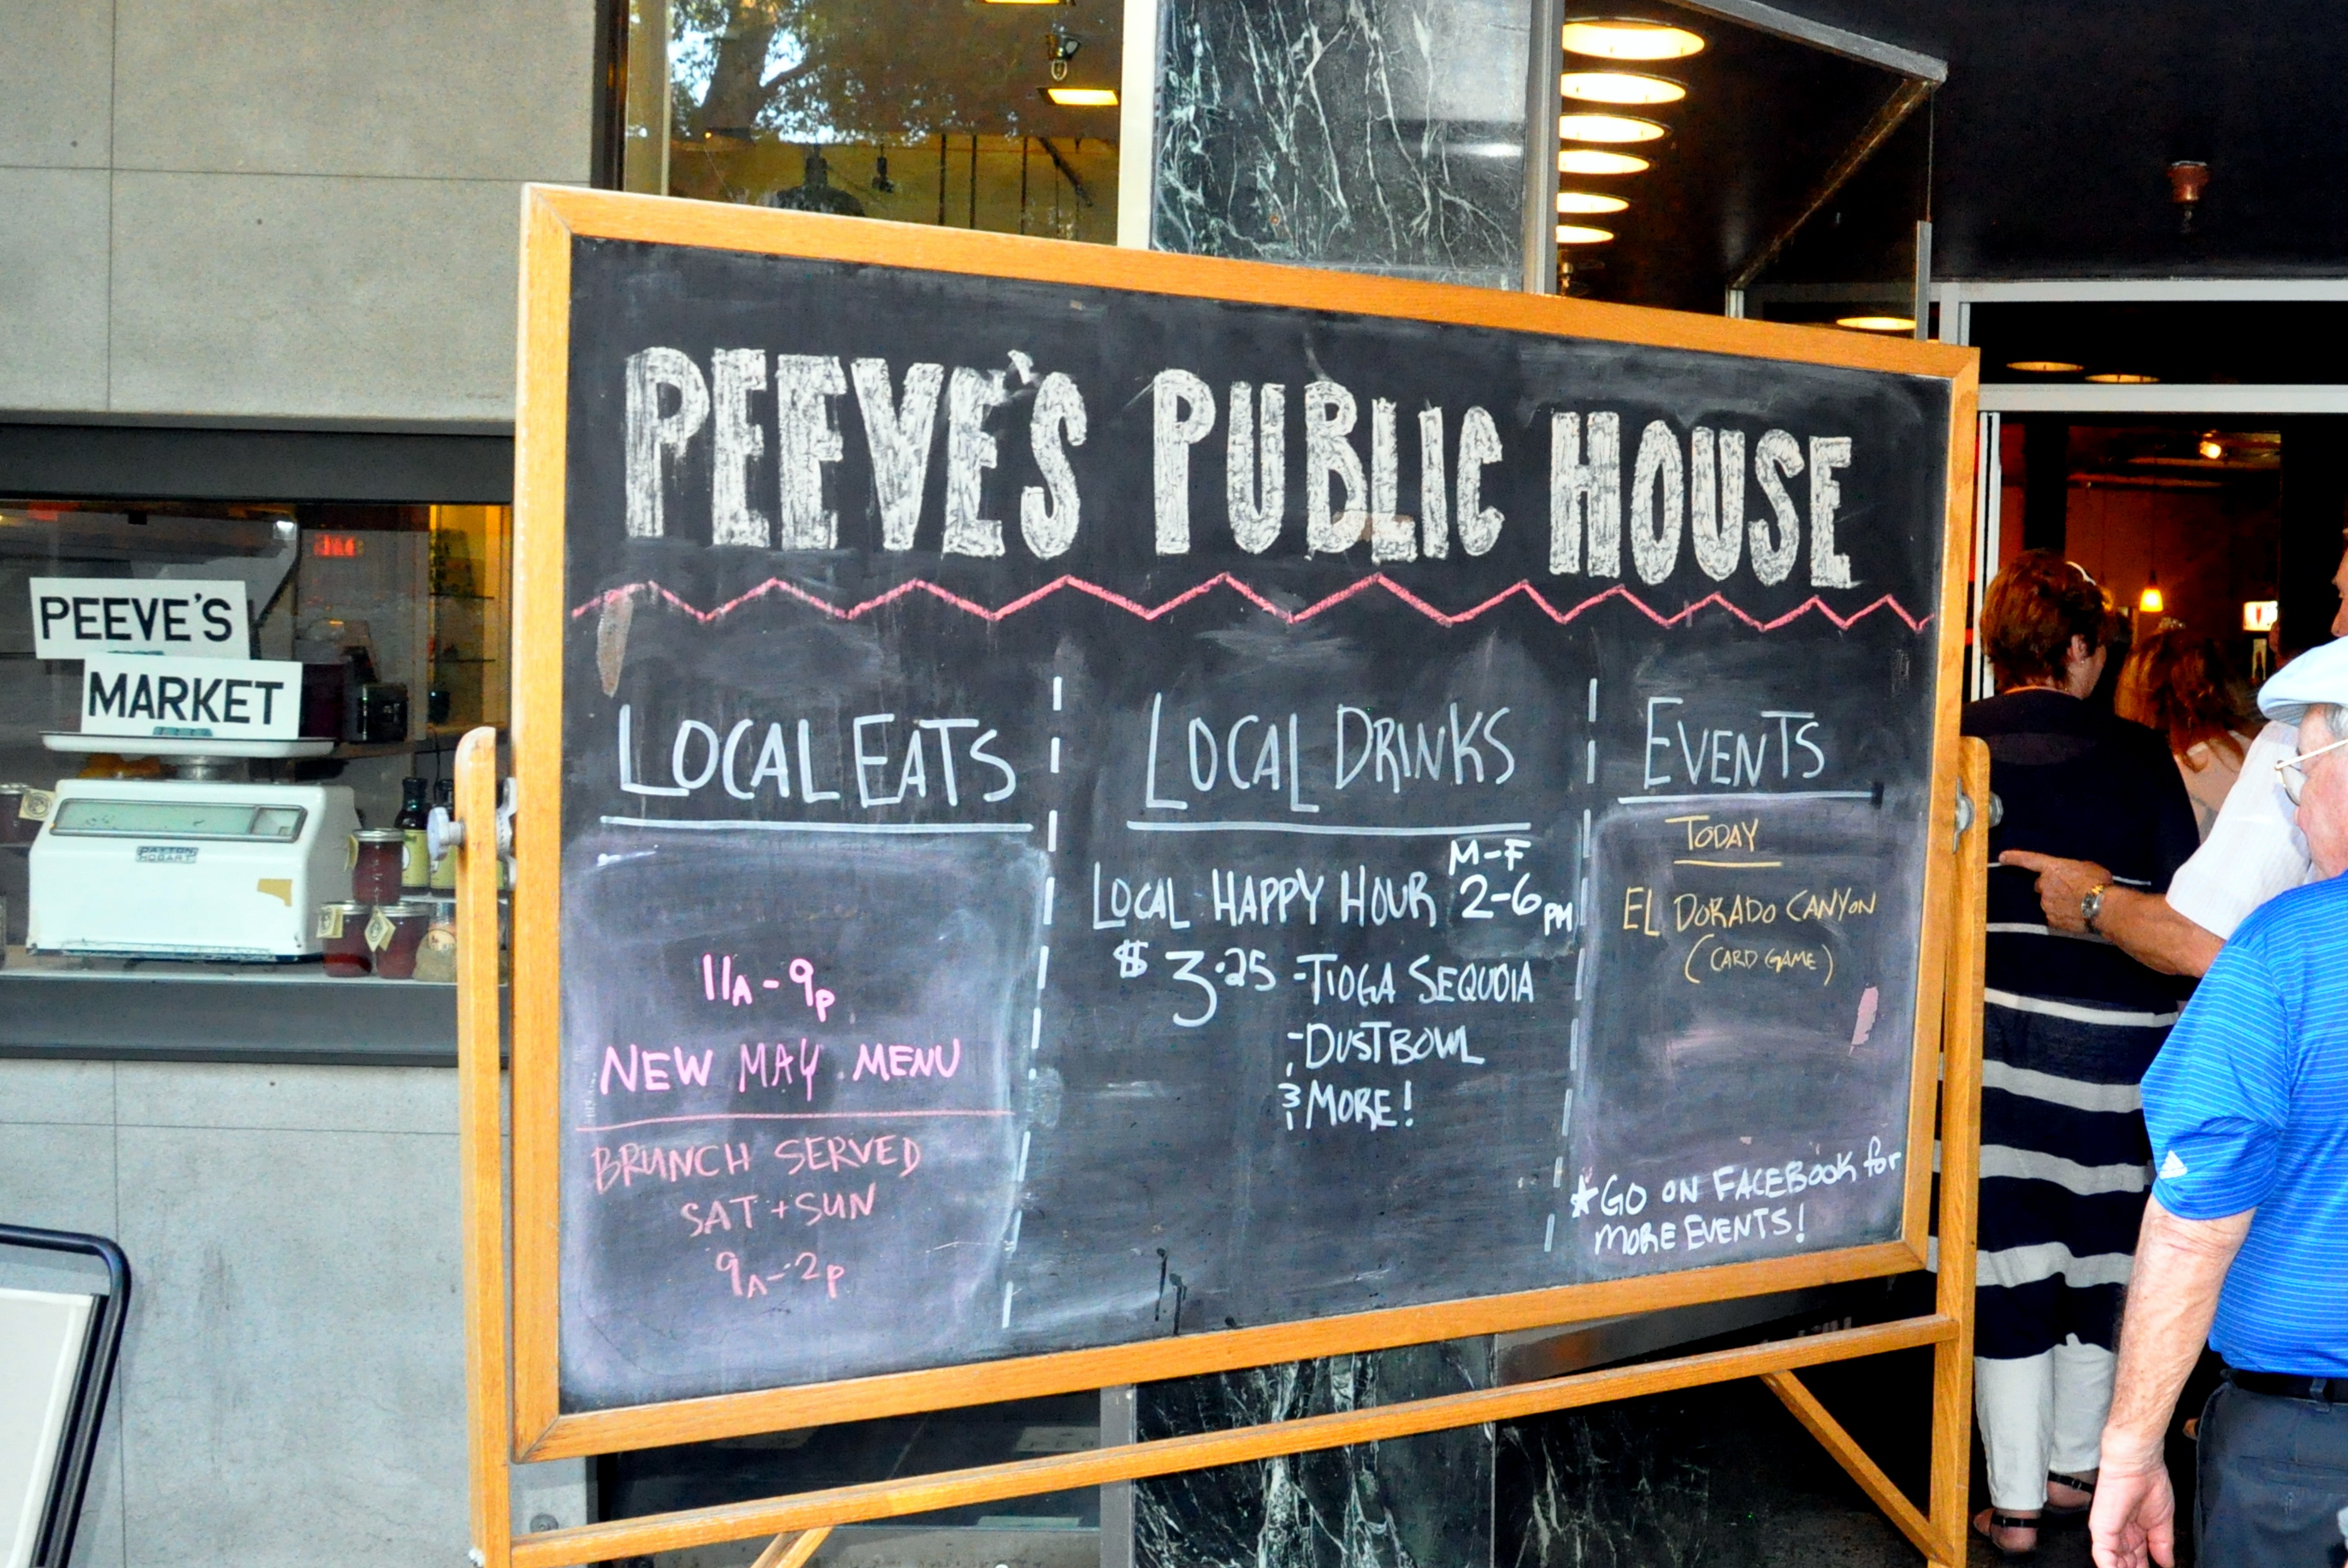 PEEVE'S PUBLIC HOUSE
PEEVE'S
MARKET
DAYTON
HOBART
LOCAL EATS
11A-9P
NEW MAY MENU
BRUNCH SERVED
SAT + SUN
9A-2P
LOCAL DRINKS
M-F
LOCAL HAPPY HOUR 2-6PM
$3.25 -TIOGA SEQUOIA
-DUSTBOWL
& MORE!
EVENTS
TODAY
EL DORADO CANYON
(CARD GAME)
*GO ON FACEBOOK for
MORE EVENTS!